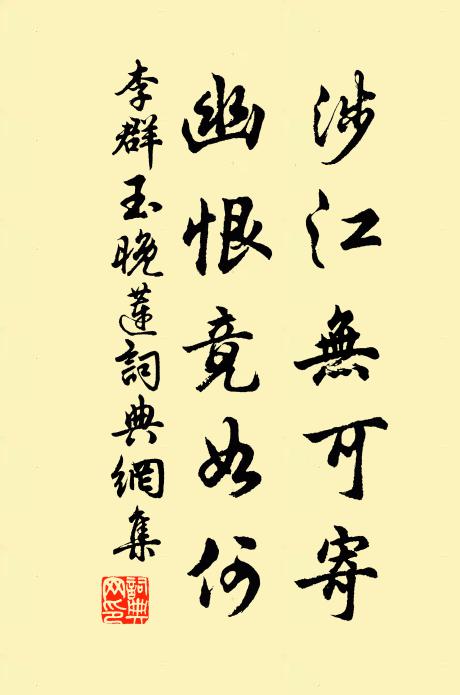 涉江無可寄
幽恨竟如何
李群玉晚蓮詞典網集
詞典网印